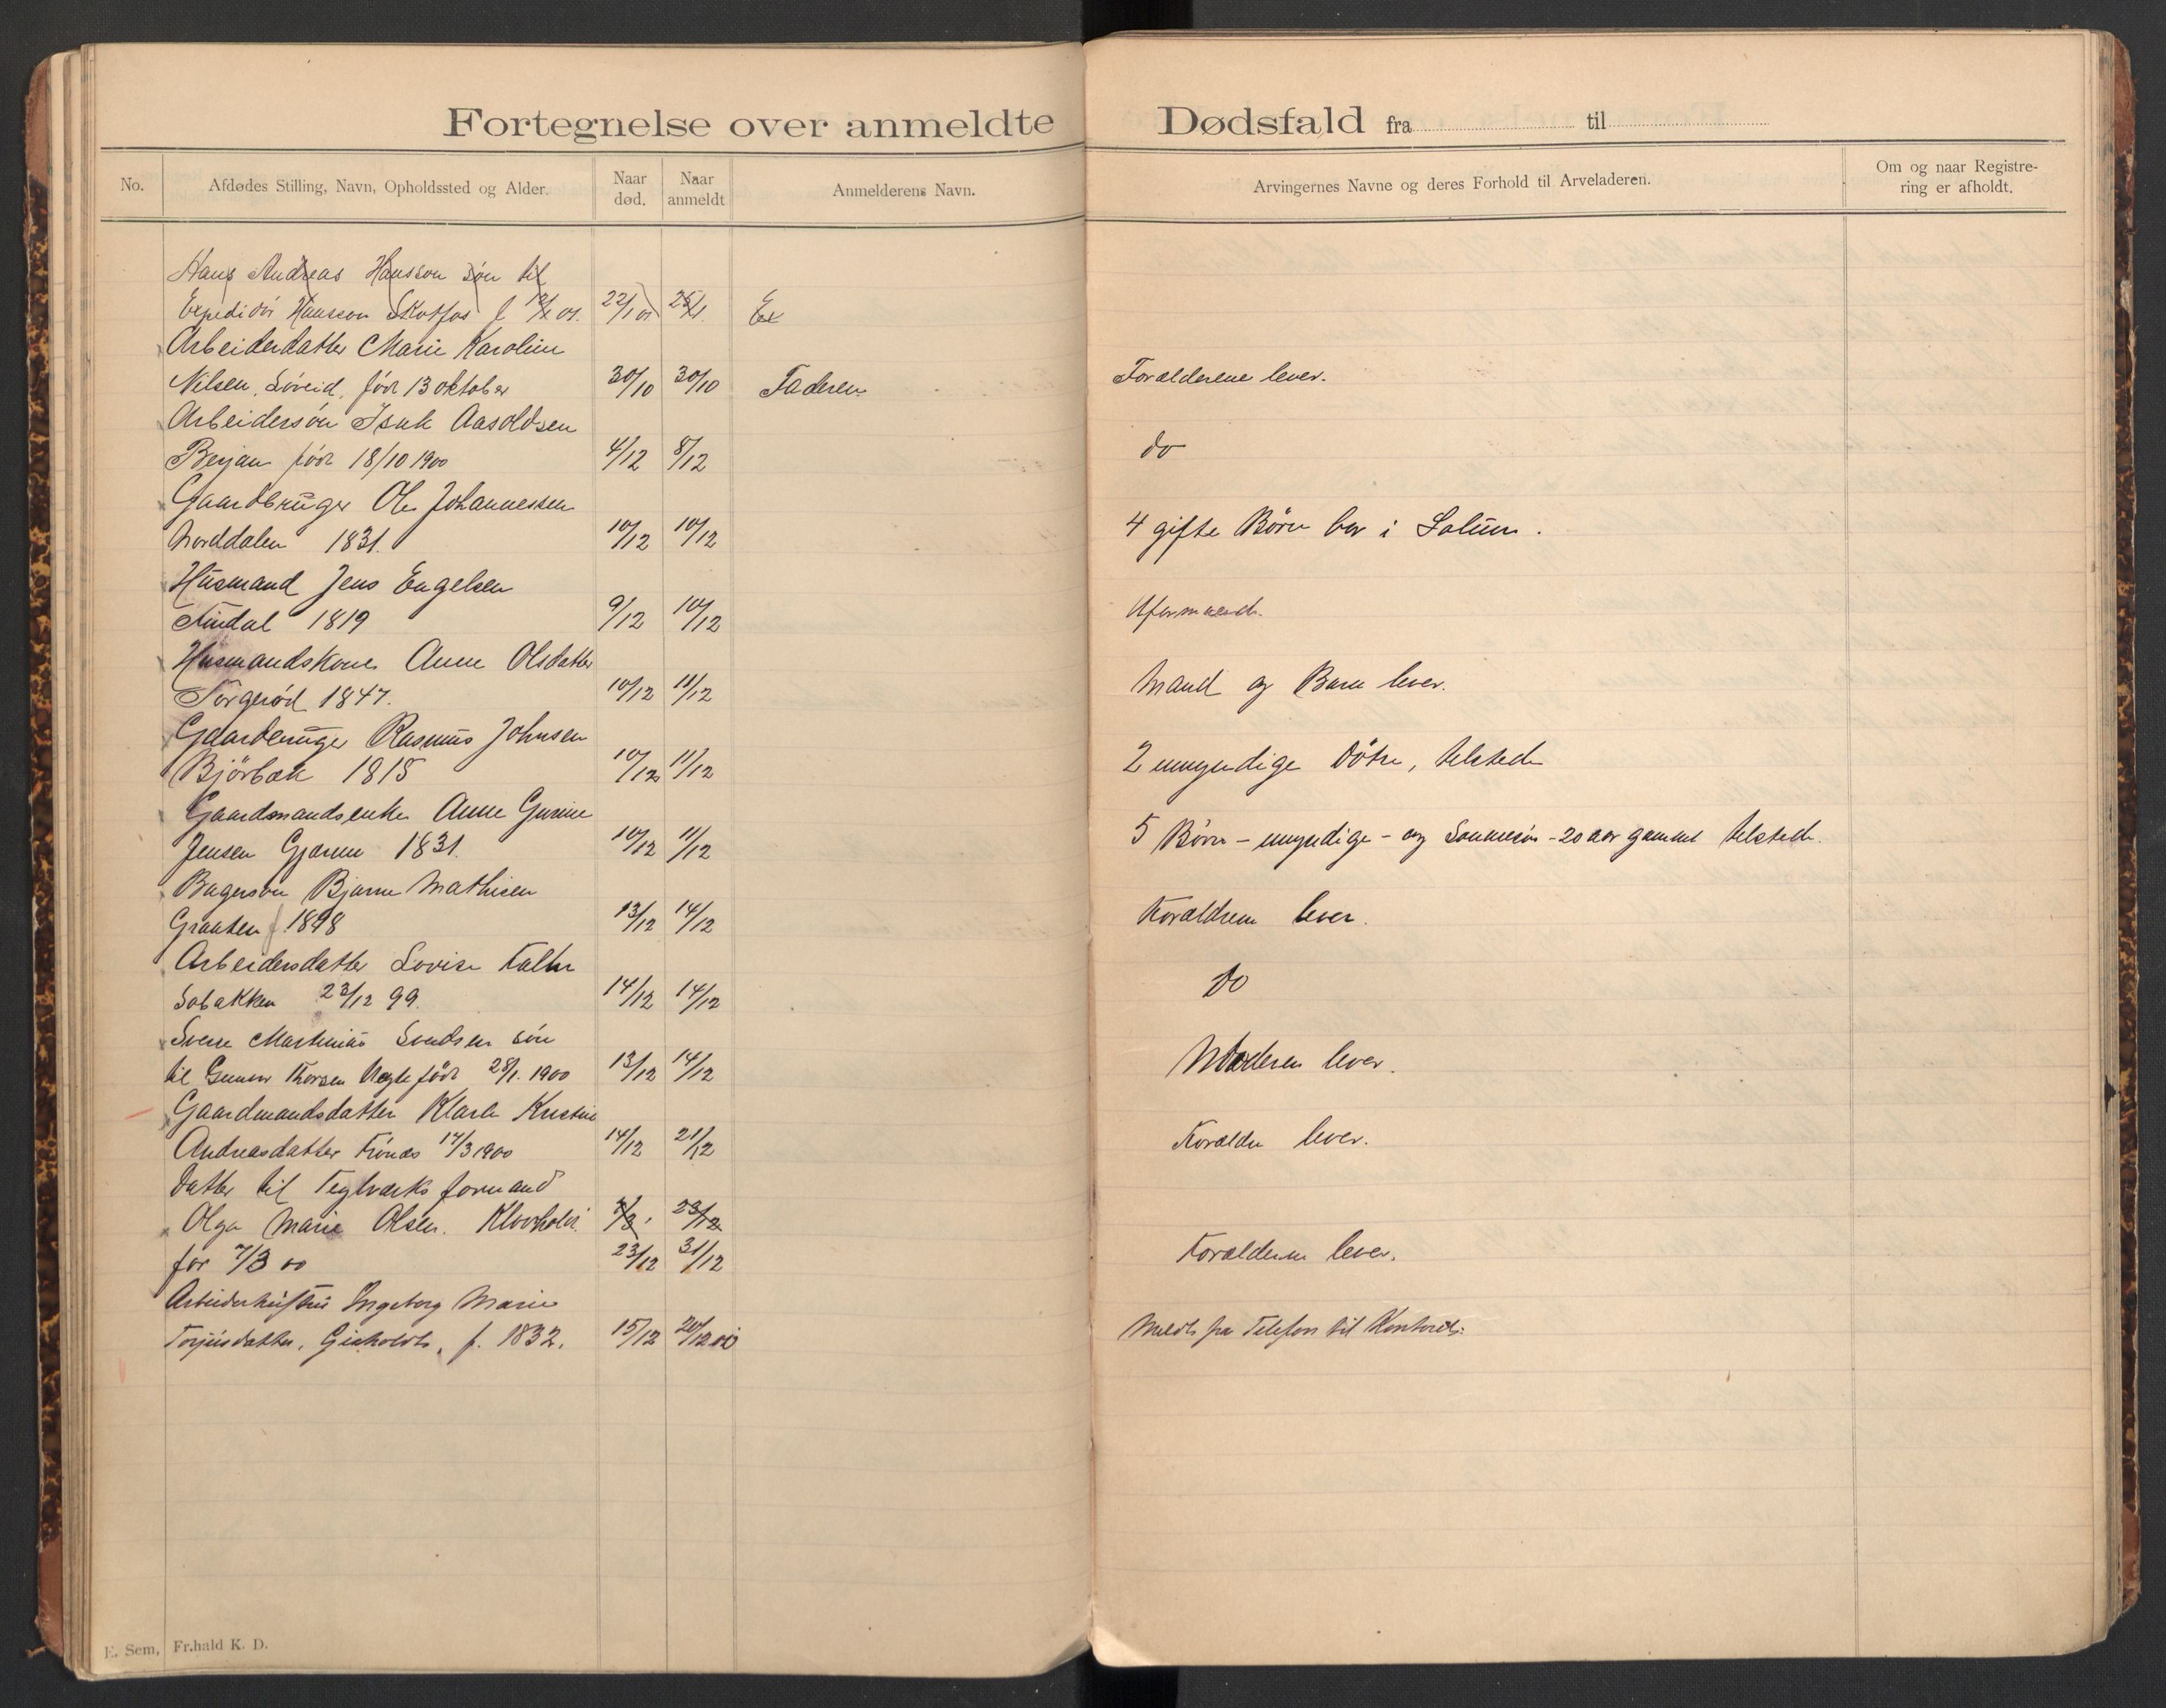 Fortegnelse over anmeldte Dødsfald fra til
No. Afdødes Stilling, Navn, Opholdssted og Alder. Naar død. Naar anmeldt Anmelderens Navn. Arvingernes Navne og deres Forhold til Arveladeren. Om og naar Registrering er afholdt.
Hans Andreas Hansson søn til
Expeditør Hansson Skotfos f 01. 22/1 01 25/1. Ex
Arbeiderdatter Marie Karoline
Nilsen, Løveid, fød 13 oktober 30/10 30/10 Faderen Forælderene lever.
Arbeidersøn Isak Aasoldsen
Berjan født 18/10 1900 4/12 8/12 do
Gaardbruger Ole Johannessen
Norddalen 1831. 10/12 10/12 4 gifte Børn bor i Solum.
Husmand Jens Engelsen
1819 9/12 10/12 Uformuende.
Husmandskone Anne Olsdatter
Torgerød 1847. 10/12 11/12 Mand og Barn lever.
Gaardbruger Rasmus Johnsen
Bjørbæk 1815 10/12 11/12 2 umyndige Døtre, tilstede
Gaardmandsenke Anne Gurine
Jensen Gjerum 1831. 10/12 11/12 5 Børn - umyndige - og Sønnesøn - 20 aar gammel tilstede.
Bagersøn Bjarne Mathisen
Graaten f. 1898 13/12 14/12 Forældrene lever.
Arbeidersdatter Lovise
Sobakken 23/12 99. 14/12 14/12 Do
Sverre Martinius Svendsen søn
til Gunnar Thorsen født 28/1. 1900 13/12 14/12 Moderen lever.
Gaardmandsdatter Klara Kristine
Andreasdatter 14/3 1900 14/12 21/12 Forældre lever.
Datter til Teglværks formand
Olga Marie Olsen. Kloverholdt 7/3 23/12
før 7/3 00 23/12 31/12 Forælderne lever.
Arbeiderhustru Ingeborg Marie
Torjusdatter, Gisholdt, f. 1832. 15/12 20/12 00 Meldt pr Telefon til Kontoret.
E. Sem, Fr.hald K. D.